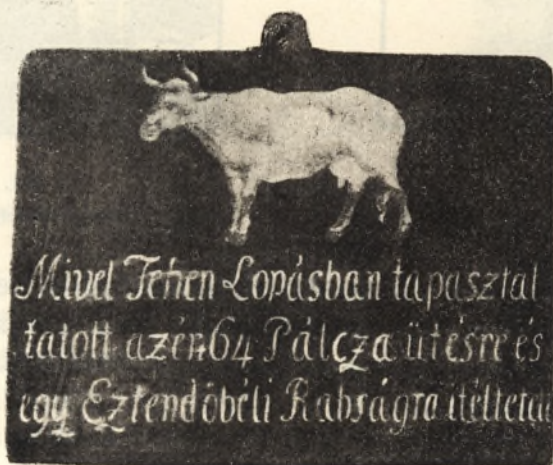 Mivel Tehen Lopásban tapasztal
tatott azért 64 Pálcza ütésre és
egy Eztendöbéli Rabságra itéltetat